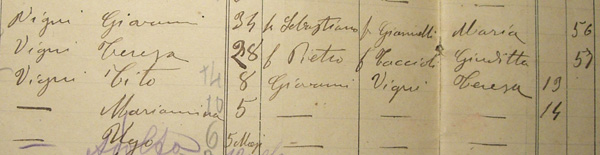 Vigni Giovanni 34 f Sebastiano f Giannelli Maria 56
Vigni Teresa 28 f Pietro f Taccioli Giuditta 57
Vigni Tito 8 Giovanni Vigni Teresa 13
— Mariannina 5 — — — 14
— Ugo 5 — — —